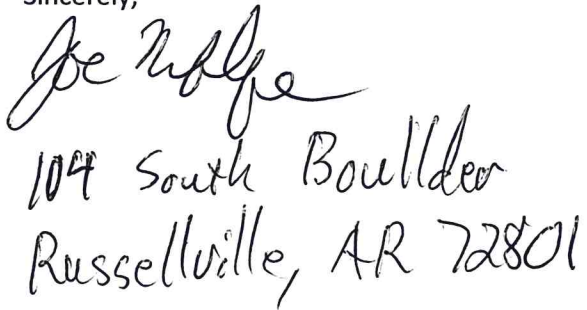 Sincerely,
Joe
104 South Boullder
Russellville, AR 72801